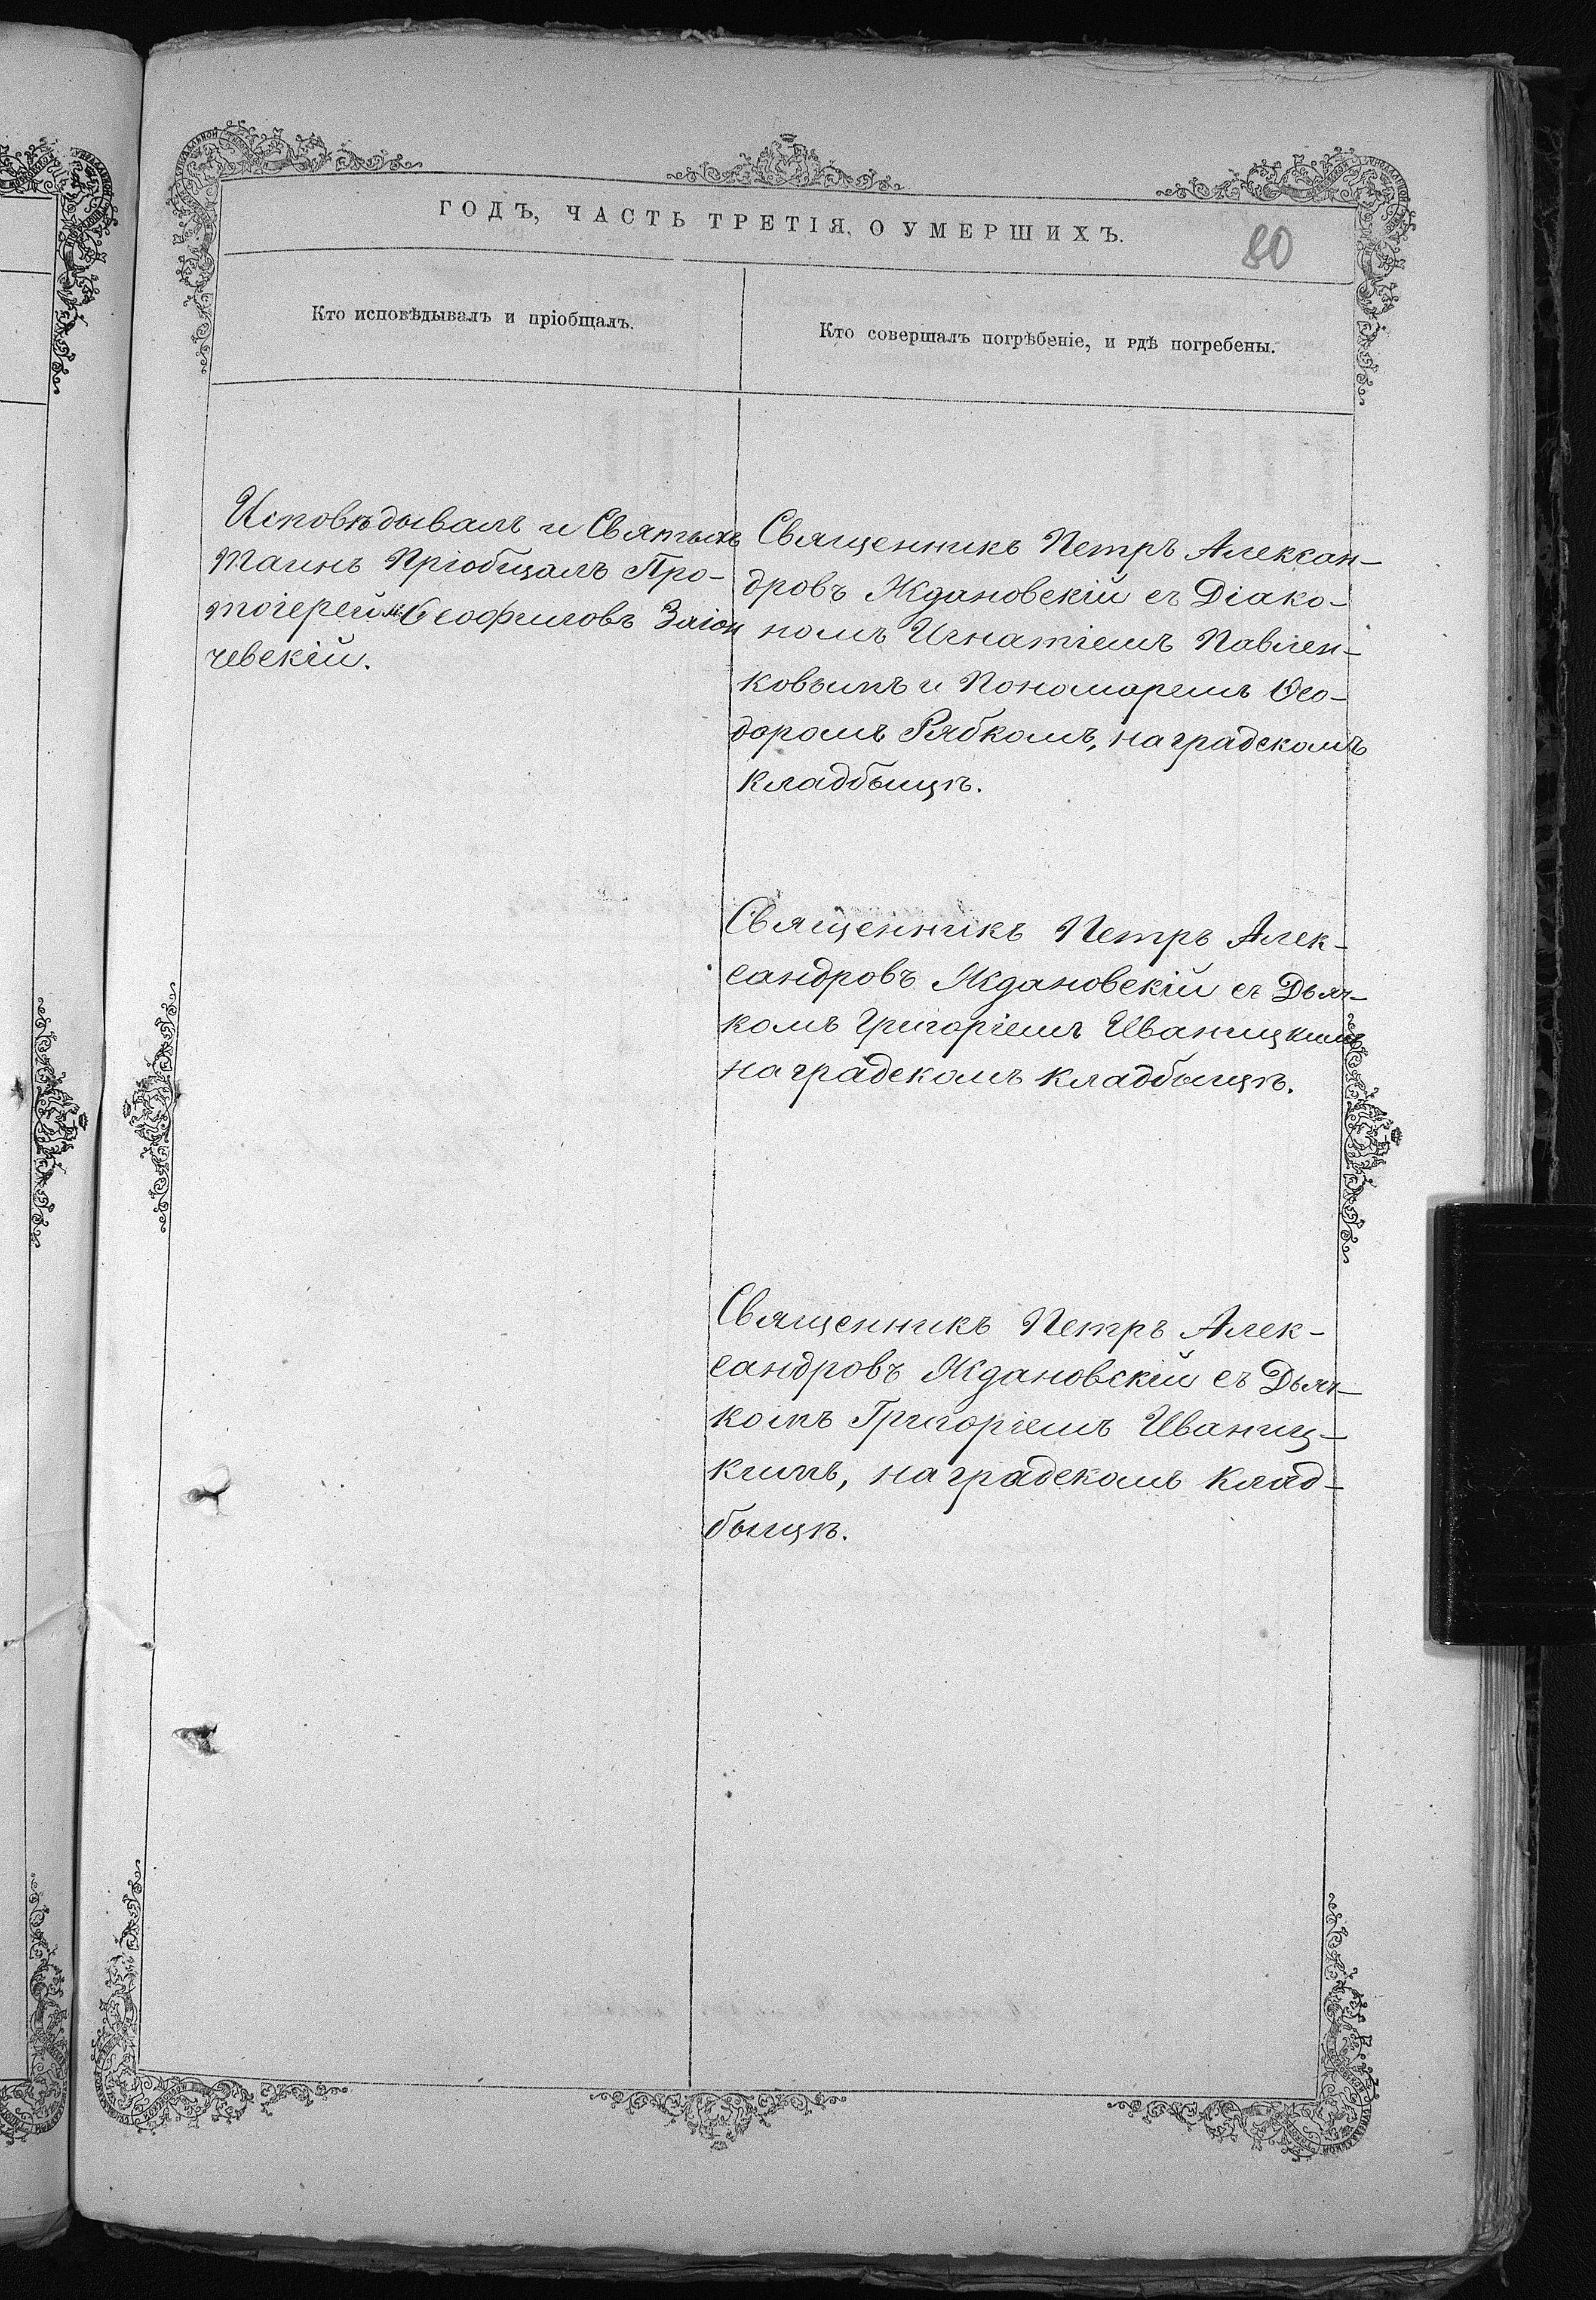 ГОДЪ, ЧАСТЬ ТРЕТІЯ, О УМЕРШИХЪ.
80
Кто исповѣдывалъ и пріобщалъ.
Кто совершалъ погрѣбеніе, и гдѣ погребены.
Исповѣдывалъ и Святыхъ
Таинъ Пріобщалъ Про-
тоіерей Ѳеофиловъ Заіон
чевскій.
Священникъ Петръ Алексан-
дровъ Ждановскій съ Діако-
номъ Игнатіемъ Павлен-
ковымъ и Пономаремъ Ѳео-
доромъ Рябкомъ, на градскомъ
кладбыщѣ.
Священникъ Петръ Алек-
сандровъ Ждановскій съ Дьяч-
комъ Григоріемъ Иваницкимъ
на градскомъ кладбыщѣ.
Священникъ Петръ Алек-
сандровъ Ждановскій съ Дьяч-
комъ Григоріемъ Иваниц-
кимъ, на градскомъ клад-
быщѣ.